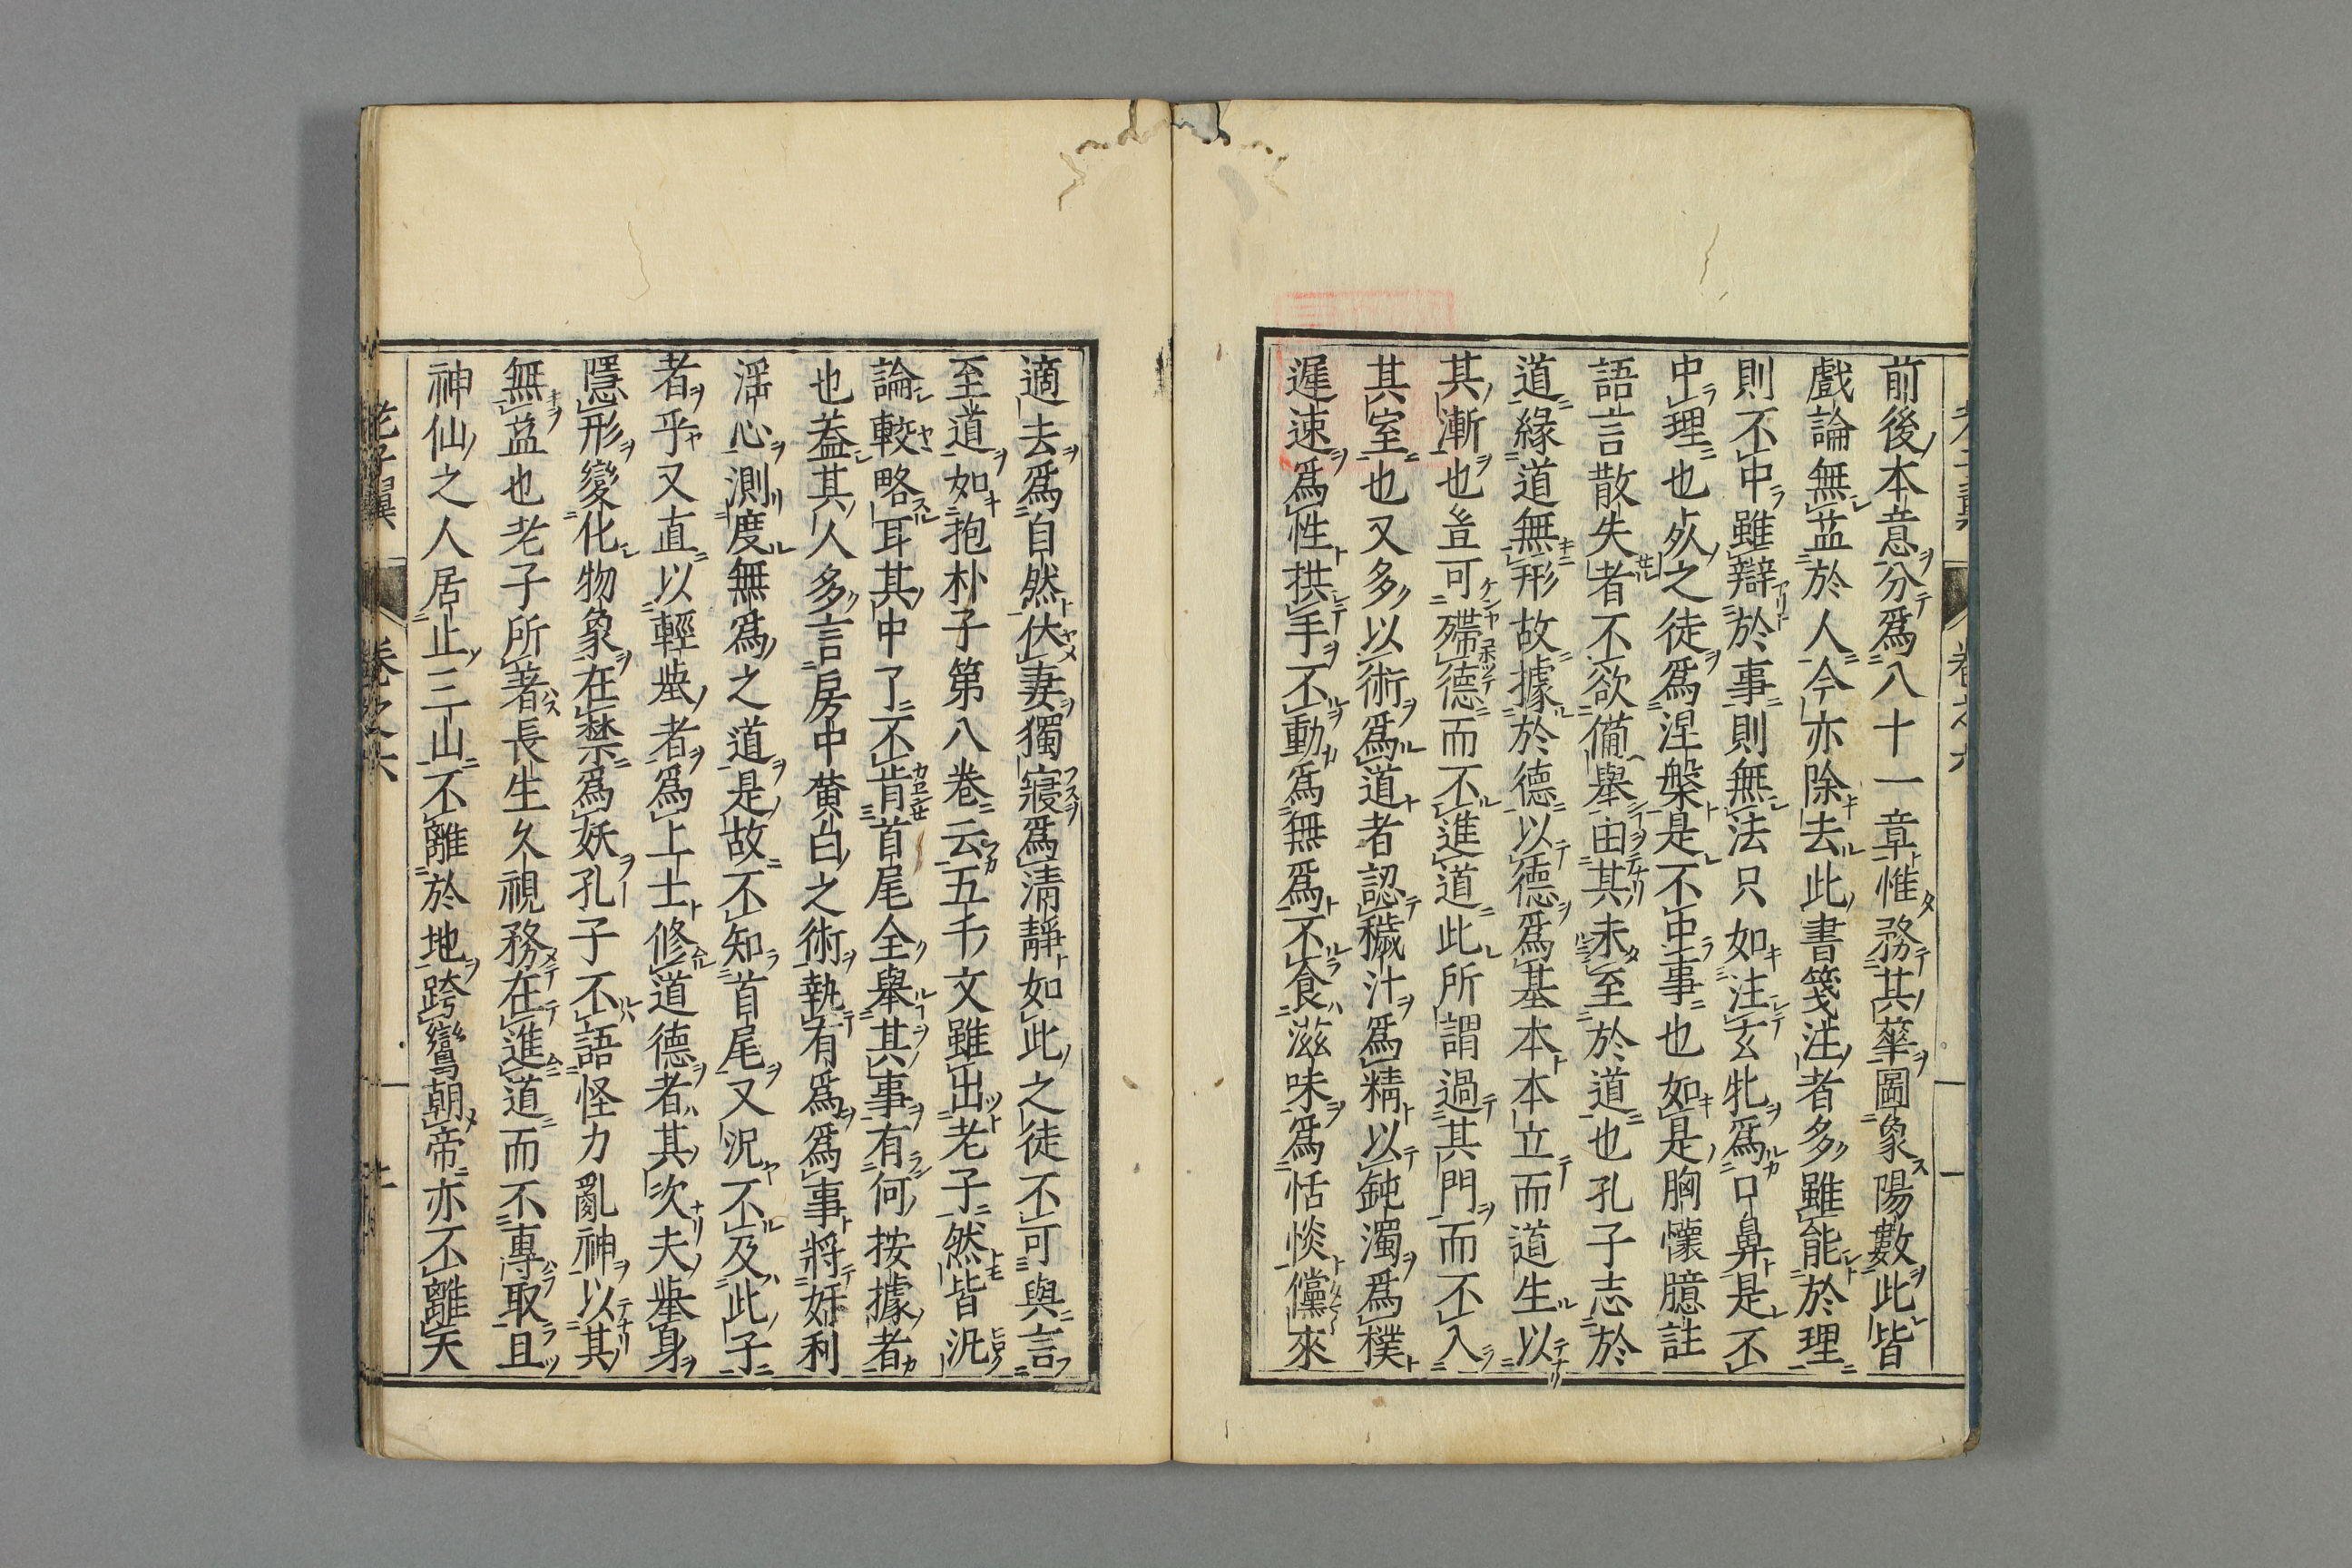 前後本意分爲八十一章惟務其華圖象陽數此皆
戲論無益於人今亦除去此書箋注者多雖能於理
則不中雖辯於事則無法只如注玄牝爲口鼻是不
中理也然之徒爲涅槃是不中事也如是胸懷臆註
語言散失者不欲備舉由其未至於道也孔子志於
道緣道無形故據於德以德爲基本本立而道生以
其漸也豈可殢德而不進道此所謂過其門而不入
其室也又多以術爲道者認穢汁爲精以鈍濁爲樸
遲速爲性拱手不動爲無爲不食滋味爲恬惔儻來
適去爲自然休妻獨寢爲清靜如此之徒不可與言
至道如抱朴子第八卷云五千文雖出老子然皆汎
論較略耳其中了不肯首尾全舉其事有何按據者
也蓋其人多言房中黃白之術執有爲爲事將奸利
淫心測度無爲之道是故不知首尾又況不及此子
者乎又直以輕舉者爲上士修道德者其次夫舉身
隱形變化物象在禁爲妖孔子不語怪力亂神以其
無益也老子所著長生久視務在進道而不專取且
神仙之人居止三山不離於地跨鸞朝帝亦不離天
老子翼 卷之六